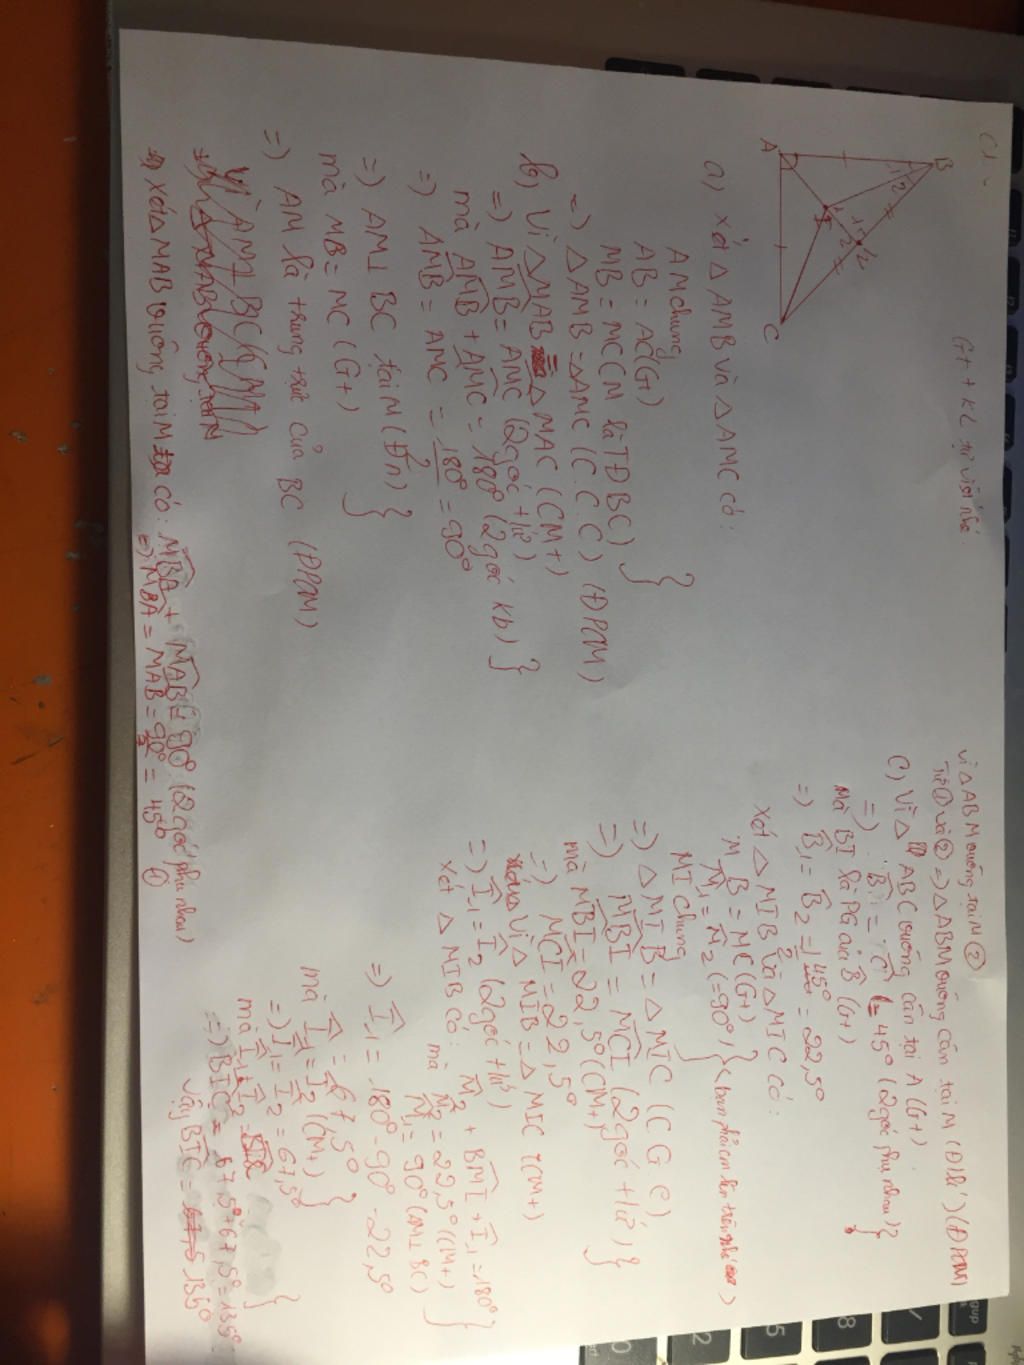 C1.
GT + KL tự viết nhé.
B
A
C
a) xét △ AMB và △ AMC có:
AM chung
AB = AC (Gt)
MB = MC (M là TĐ BC) }
=) △ AMB = △ AMC (C.C.C) (ĐPCM)
b) Vì △ MAB = △ MAC (CM+)
=) AMB = AMC (2 góc +ứ)
mà AMB + AMC = 180° (2 góc kb) }
=) AMB = AMC = 180°/2 = 90°
=) AM ⊥ BC tại M (Đn) }
mà MB = MC (G+)
=) AM là trung trực của BC (ĐPCM)
xét △ MAB vuông tại M có: MBA + MAB = 90° (2 góc phụ nhau)
=) MBA = MAB = 90°/2 = 45° ①
vì △ ABM vuông tại M ②
Từ ① và ② =) △ ABM vuông cân tại M (ĐPCM)
C) Vì △ ABC vuông cân tại A (G+)
=) B = C = 45° (2 góc phụ nhau) }
Mà BI là PG của B (G+)
=) B1 = B2 = 45°/2 = 22,5°
xét △ MIB và △ MIC có:
MB = MC (G+)
M1 = M2 (= 90°)
MI chung }
=) △ MIB = △ MIC (C G C)
=) MBI = MCI (2 góc +ứ) }
mà MBI = 22,5° (CM+)
=) MCI = 22,5°
Vì △ MIB = △ MIC (CM+)
=) I1 = I2 (2 góc +ứ)
xét △ MIB có: M2 + BMI + I1 = 180° }
mà M2 = 22,5° (CM+)
M1 = 90° (M ⊥ BC)
=) I1 = 180° - 90° - 22,5°
I1 = 67,5°
mà I1 = I2 (CM+) }
=) I1 = I2 = 67,5°
mà I1 + I2 = BIC }
=) BIC = 67,5° + 67,5° = 135°
Vậy BIC = 135°